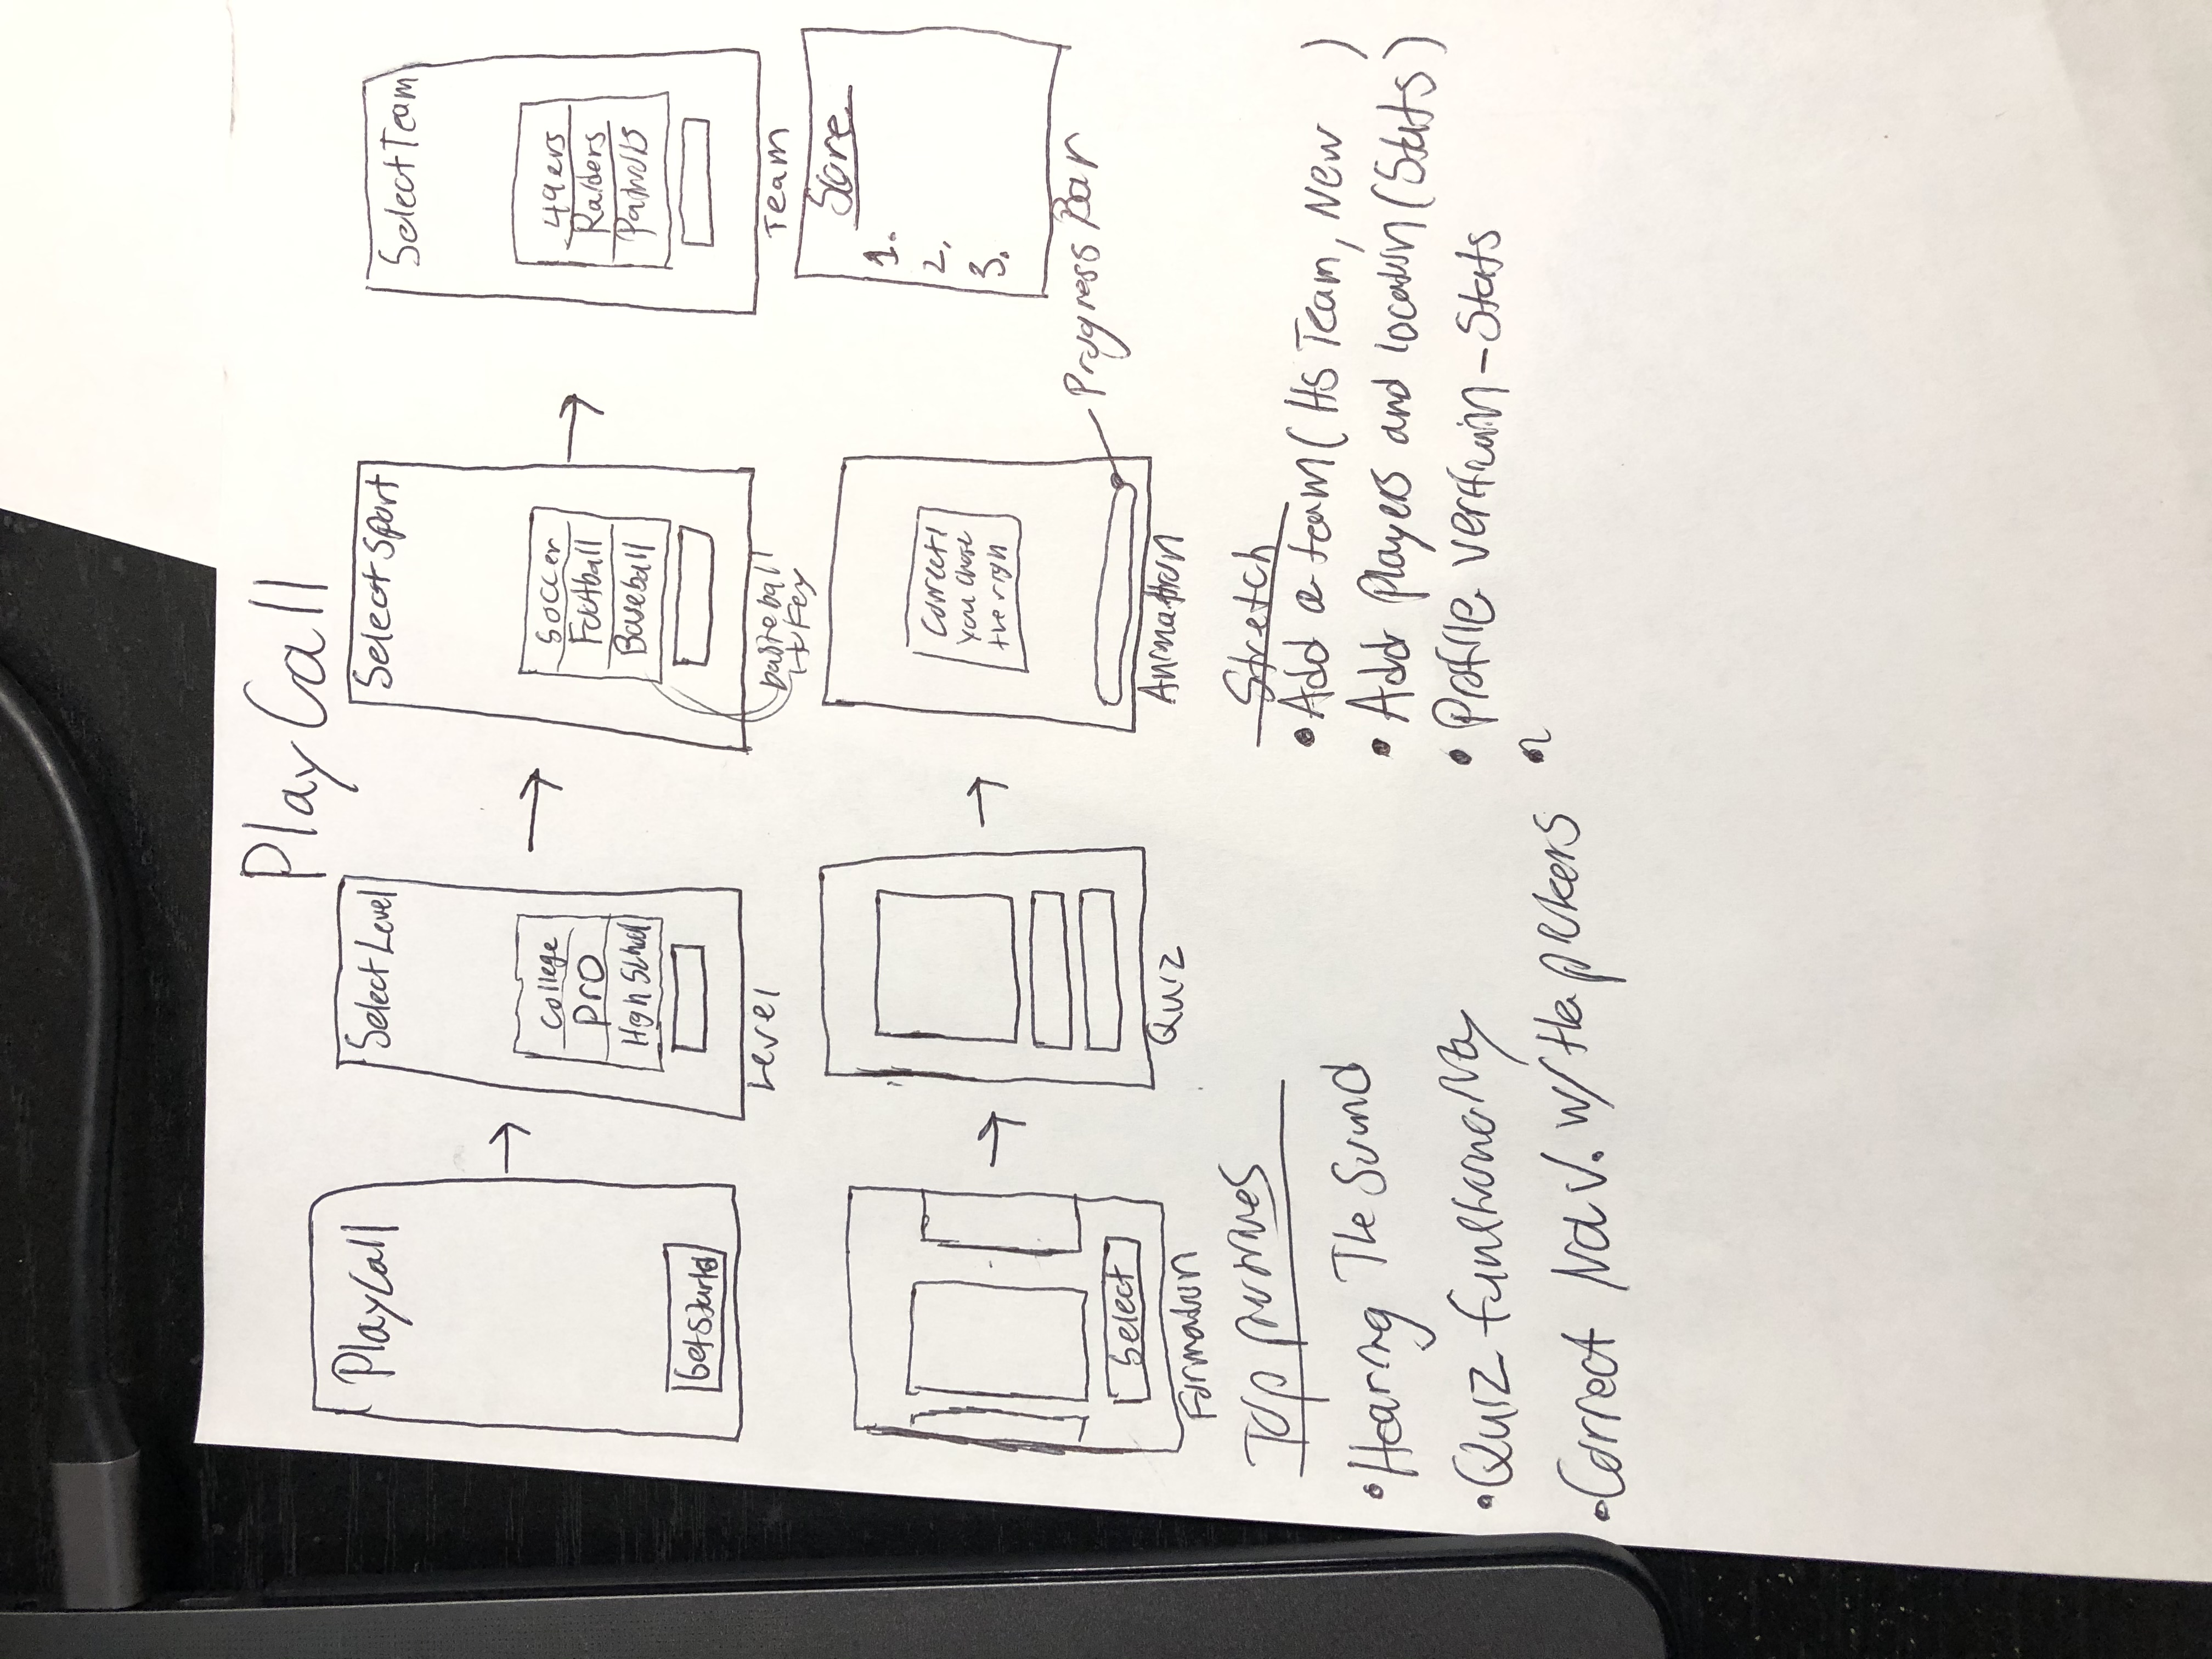 PlayCall
PlayCall
Get Started
Select Level
College
Pro
High School
Level
Select Sport
Soccer
Football
Baseball
Hokey
Select Team
49ers
Raiders
Patriots
Team
Select
Formation
Quiz
Correct!
You chose
the righ
Animation
Progress Bar
Score
1.
2.
3.
Top priorities
• Hearing The Sound
• Quiz functionality
• Correct Nav. w/ the pickers
Stretch
• Add a team (HS Team, New )
• Add players and location (Stats)
• Profile - Stats
•